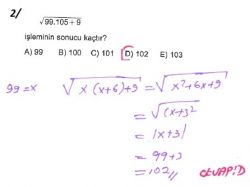 2/
√99.105+9
işleminin sonucu kaçtır?
A) 99 B) 100 C) 101 D) 102 E) 103
99=x √x(x+6)+9 = √x²+6x+9
= √(x+3)²
= |x+3|
= 99+3
= 102//
CEVAP:D